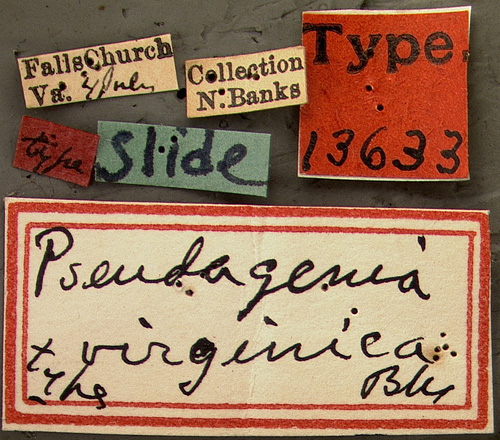 Falls Church
Va. 4 July
Collection
N. Banks
Type.
13633
type
slide
Pseudagenia
virginica
type
Bks